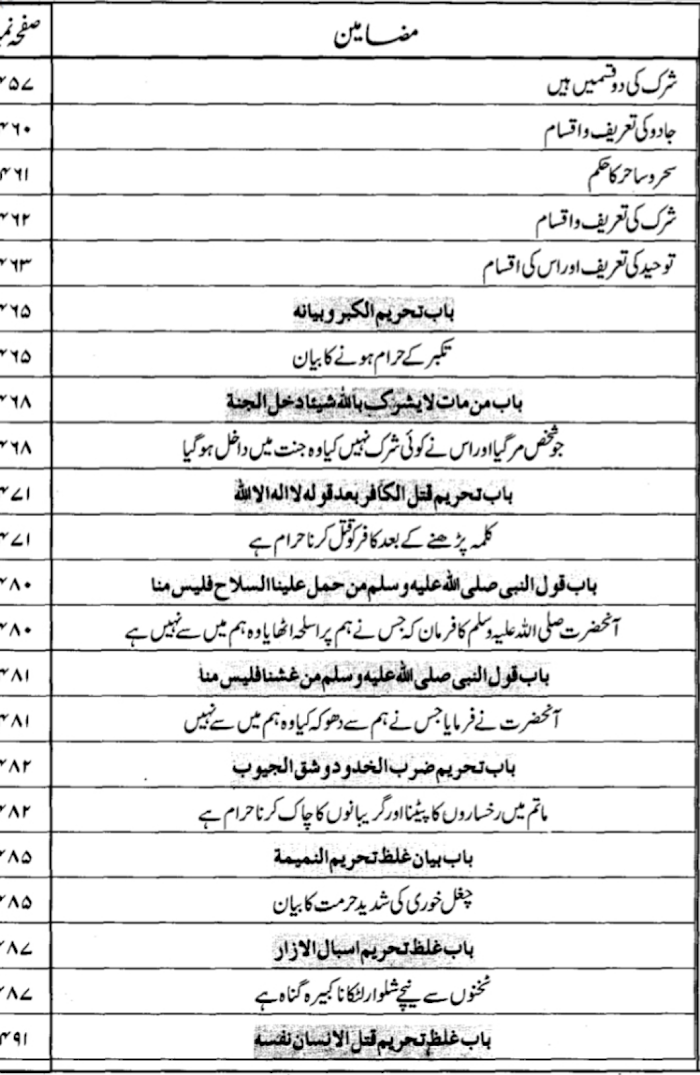 مضامین صفحہ
شرک کی دو قسمیں ہیں ۴۵۷
جادو کی تعریف و اقسام ۴۶۰
سحر و ساحر کا حکم ۴۶۱
شرک کی تعریف و اقسام ۴۶۲
توحید کی تعریف اور اس کی اقسام ۴۶۳
باب تحریم الکبر و بیانه ۴۶۵
تکبر کے حرام ہونے کا بیان ۴۶۵
باب من مات لا یشرک باللہ شیئا دخل الجنة ۴۶۸
جو شخص مر گیا اور اس نے کوئی شرک نہیں کیا وہ جنت میں داخل ہو گیا ۴۶۸
باب تحریم قتل الکافر بعد قوله لا اله الا اللہ ۴۷۱
کلمہ پڑھنے کے بعد کافر کو قتل کرنا حرام ہے ۴۷۱
باب قول النبی صلی اللہ علیه وسلم من حمل علینا السلاح فلیس منا ۴۸۰
آنحضرت صلی اللہ علیہ وسلم کا فرمان کہ جس نے ہم پر اسلحہ اٹھایا وہ ہم میں سے نہیں ہے ۴۸۰
باب قول النبی صلی اللہ علیه وسلم من غشنا فلیس منا ۴۸۱
آنحضرت نے فرمایا جس نے ہم سے دھوکہ کیا وہ ہم میں سے نہیں ۴۸۱
باب تحریم ضرب الخدود و شق الجیوب ۴۸۲
ماتم میں رخساروں کا پیٹنا اور گریبانوں کا چاک کرنا حرام ہے ۴۸۲
باب بیان غلظ تحریم النمیمة ۴۸۵
چغل خوری کی شدید حرمت کا بیان ۴۸۵
باب غلظ تحریم اسبال الازار ۴۸۷
ٹخنوں سے نیچے شلوار لٹکانا کبیرہ گناہ ہے ۴۸۷
باب غلظ تحریم قتل الانسان نفسه ۴۹۱